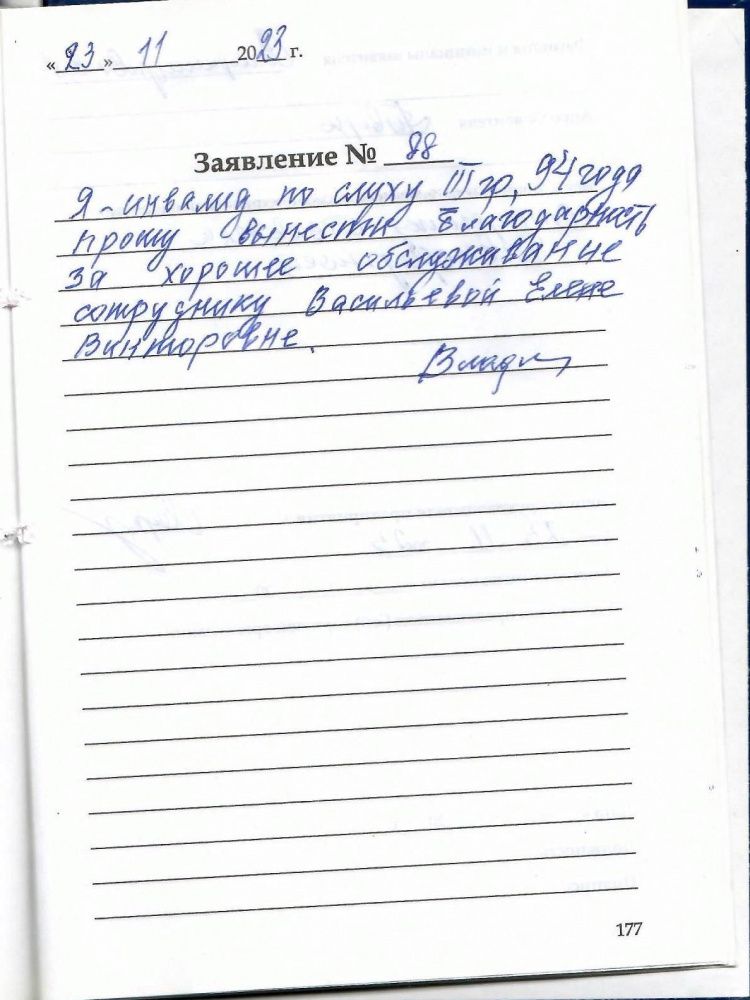 «23» 11 2023 г.
Заявление № 88
Я - инвалид по слуху III гр, 94 года
прошу вынести благодарность
за хорошее обслуживание
сотруднику Васильевой Елене
Викторовне.
177